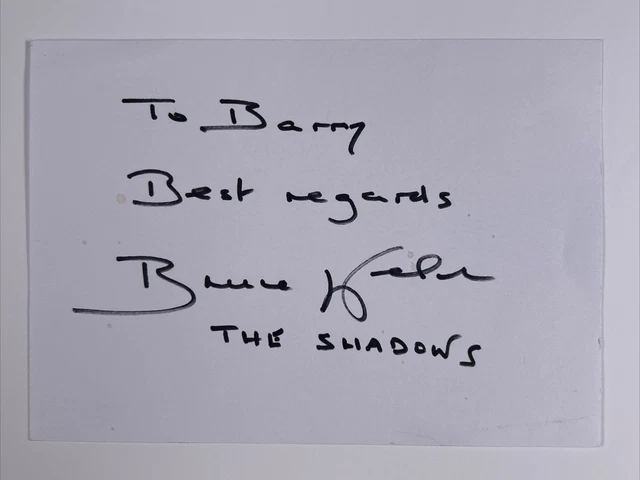 To Barry
Best regards
Bruce Welch
THE SHADOWS